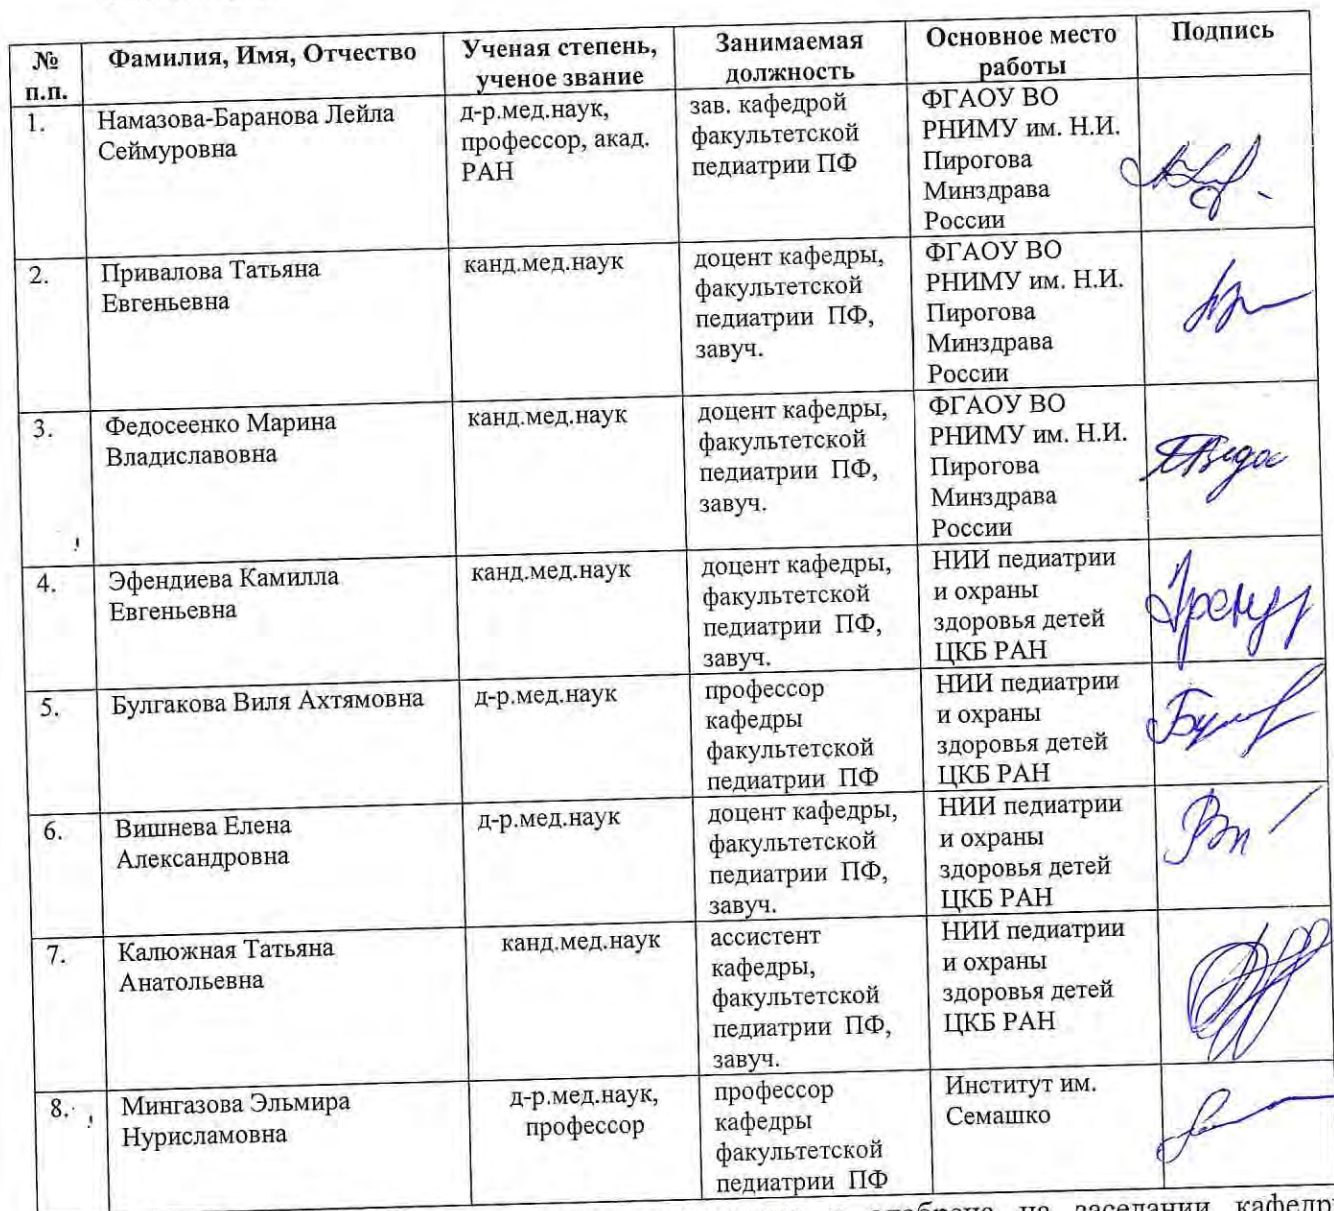 № п.п. Фамилия, Имя, Отчество Ученая степень, ученое звание Занимаемая должность Основное место работы Подпись
1. Намазова-Баранова Лейла Сеймуровна д-р.мед.наук, профессор, акад. РАН зав. кафедрой факультетской педиатрии ПФ ФГАОУ ВО РНИМУ им. Н.И. Пирогова Минздрава России
2. Привалова Татьяна Евгеньевна канд.мед.наук доцент кафедры, факультетской педиатрии ПФ, завуч. ФГАОУ ВО РНИМУ им. Н.И. Пирогова Минздрава России
3. Федосеенко Марина Владиславовна канд.мед.наук доцент кафедры, факультетской педиатрии ПФ, завуч. ФГАОУ ВО РНИМУ им. Н.И. Пирогова Минздрава России
4. Эфендиева Камилла Евгеньевна канд.мед.наук доцент кафедры, факультетской педиатрии ПФ, завуч. НИИ педиатрии и охраны здоровья детей ЦКБ РАН
5. Булгакова Виля Ахтямовна д-р.мед.наук профессор кафедры факультетской педиатрии ПФ НИИ педиатрии и охраны здоровья детей ЦКБ РАН
6. Вишнева Елена Александровна д-р.мед.наук доцент кафедры, факультетской педиатрии ПФ, завуч. НИИ педиатрии и охраны здоровья детей ЦКБ РАН
7. Калюжная Татьяна Анатольевна канд.мед.наук ассистент кафедры, факультетской педиатрии ПФ, завуч. НИИ педиатрии и охраны здоровья детей ЦКБ РАН
8. Мингазова Эльмира Нурисламовна д-р.мед.наук, профессор профессор кафедры факультетской педиатрии ПФ Институт им. Семашко
на заседании кафедры